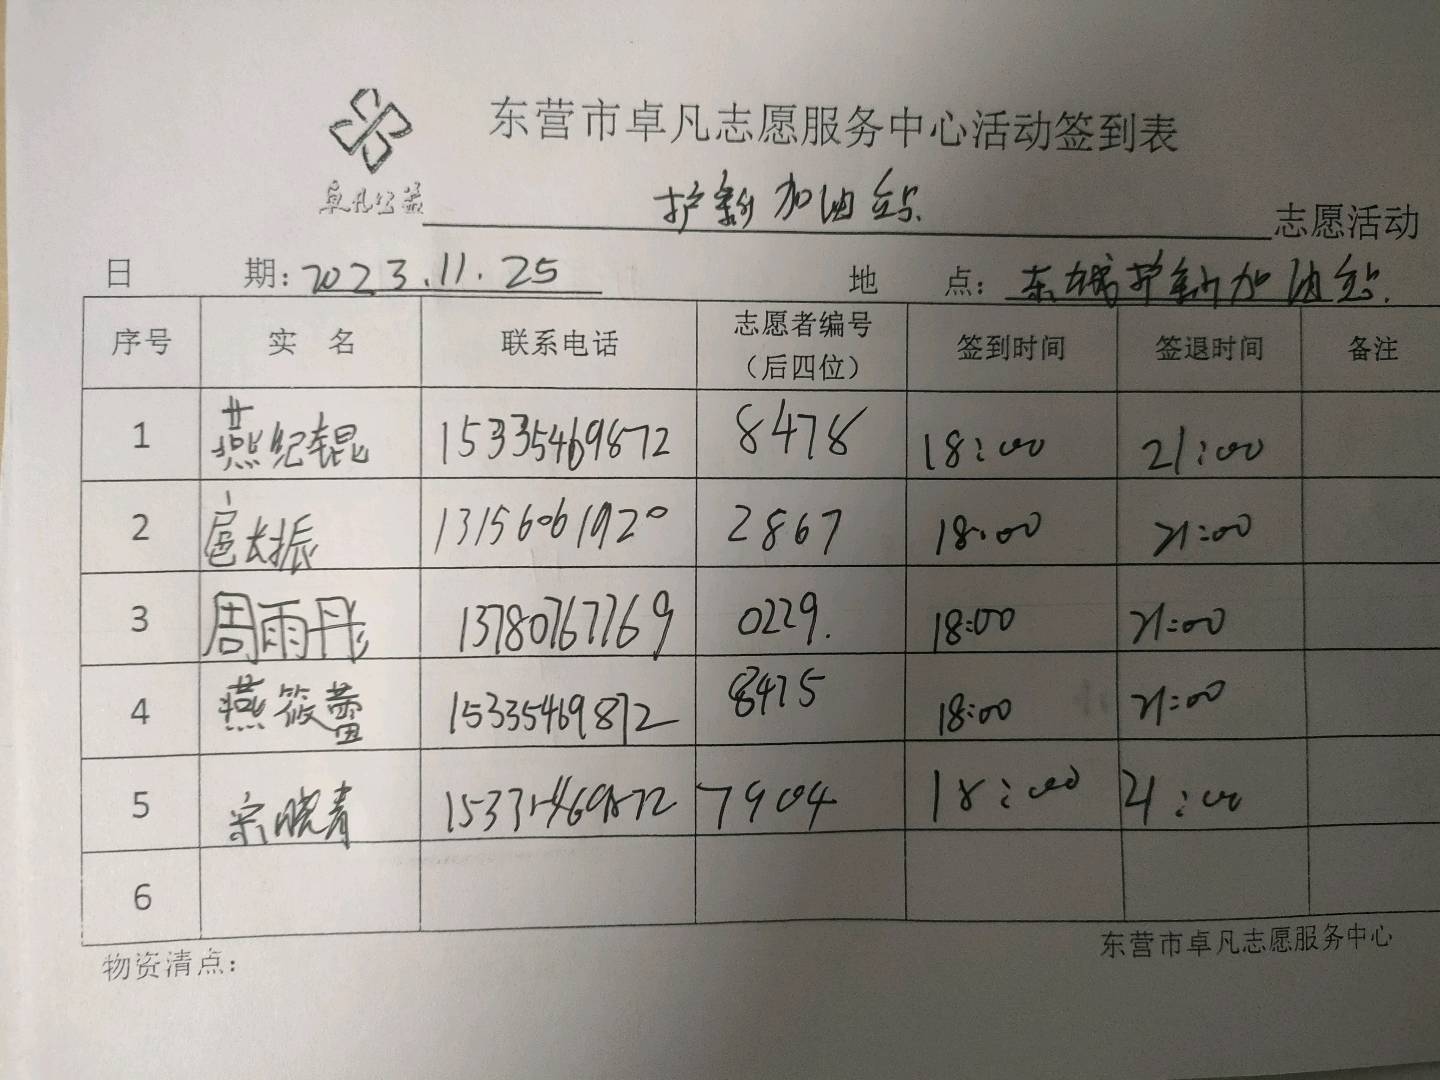 东营市卓凡志愿服务中心活动签到表
卓凡公益
护新加油站 志愿活动
日 期：2023.11.25 地 点：东城护新加油站
序号 实 名 联系电话 志愿者编号（后四位） 签到时间 签退时间 备注
1 燕纪辊 15335469872 8478 18:00 21:00
2 扈太振 13156061920 2867 18:00 21:00
3 周雨彤 13780767769 0229. 18:00 21:00
4 燕筱蕾 15335469872 8475 18:00 21:00
5 宋晓青 15335469872 7904 18:00 21:00
6
物资清点：
东营市卓凡志愿服务中心